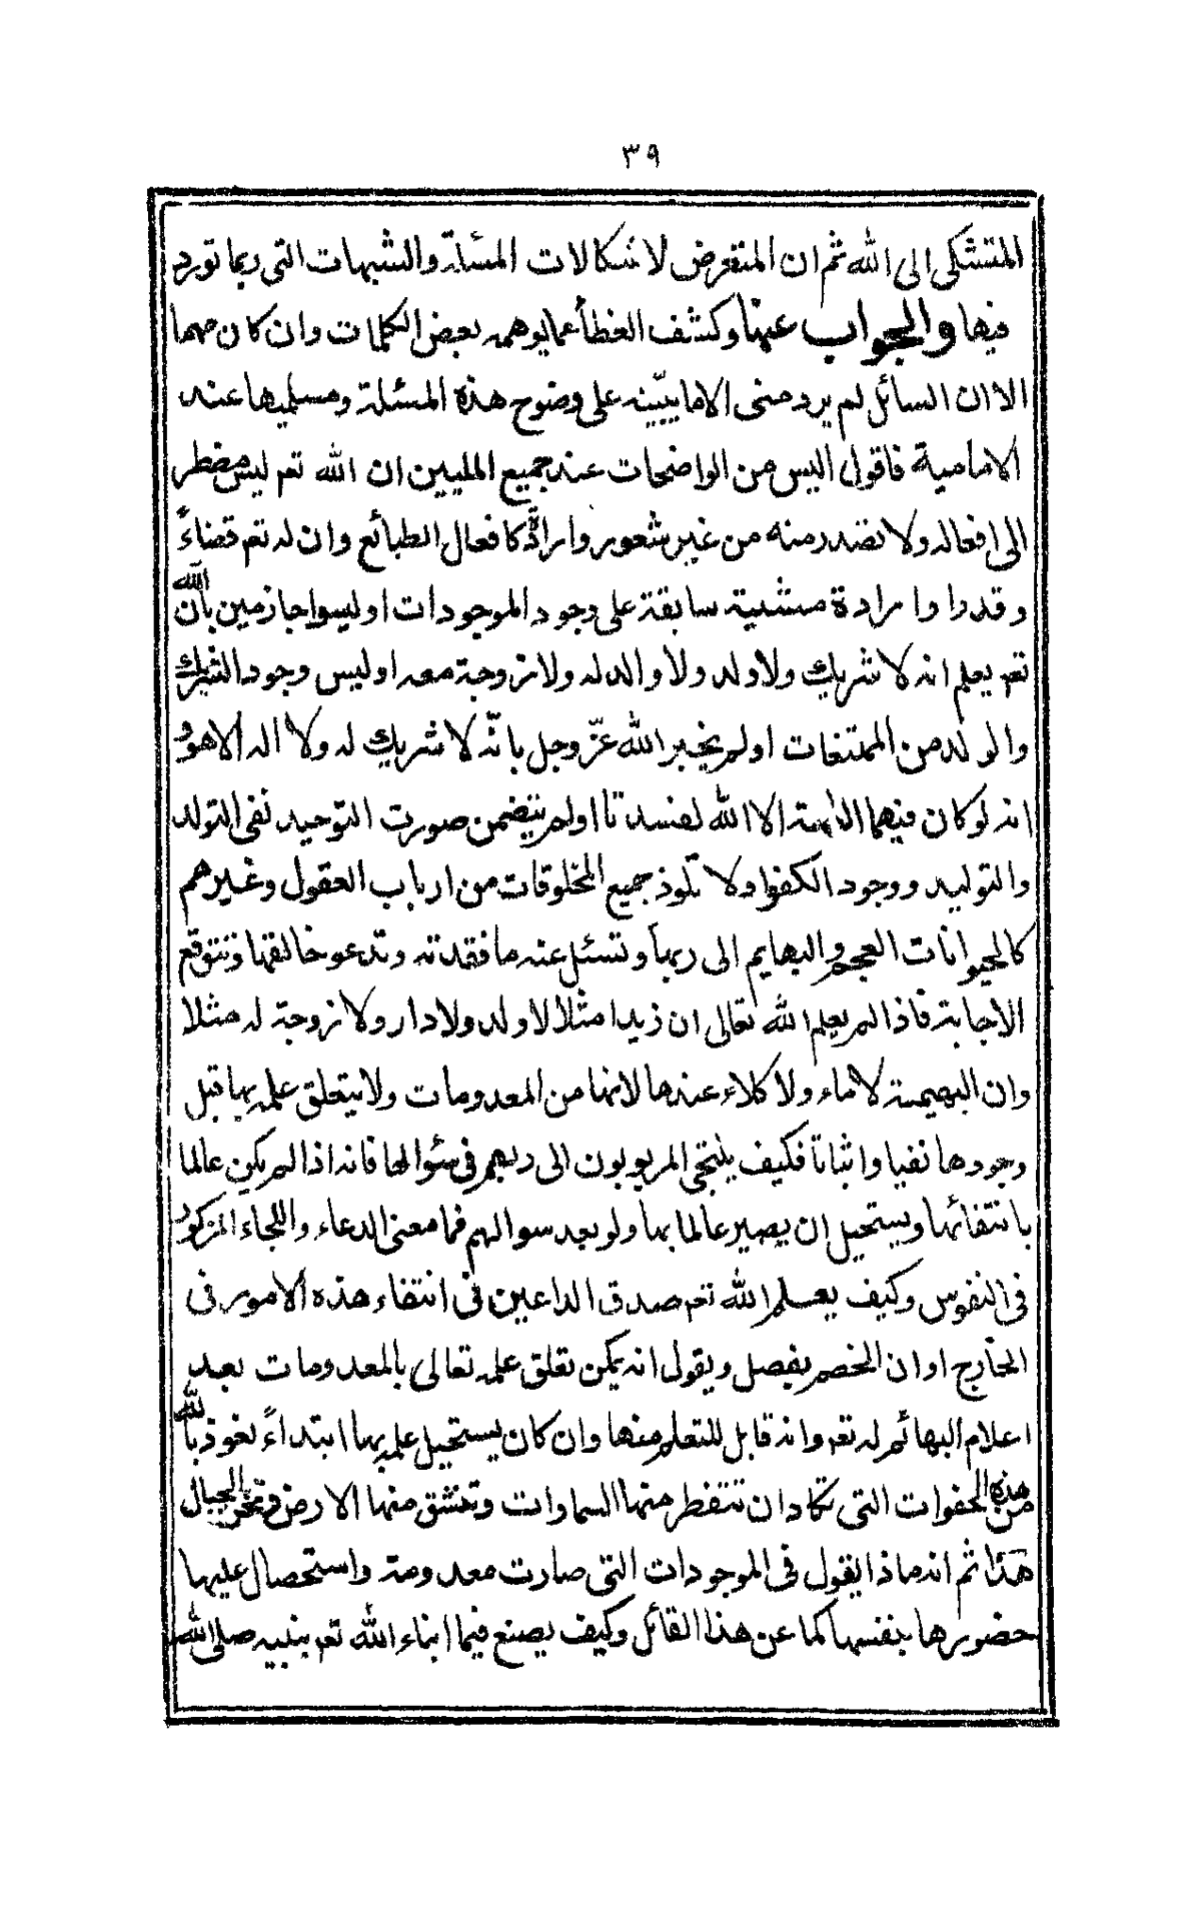 ٣٩
المتشكى الى الله ثم ان التعرض لاشكالات المسئلة والشبهات التى ربما تورد
فيها والجواب عنها وكشف الغطأ عما يوهمه بعض الكلمات وان كان مهما
الا ان السائل لم يرد منى الا ما يبيّنه على وضوح هذه المسئلة ومسلميها عند
الامامية فاقول اليس من الواضحات عند جميع المليين ان الله تعم ليس مضطر
الى افعاله ولا تصدر منه من غير شعور وارادة كافعال الطبائع وان له تعم قضاءً
وقدرا وارادة مشية سابقة على وجود الموجودات اوليسوا جازمين بان الله
تعم يعلم انه لا شريك ولا ولد ولا والد له ولا زوجة معه اوليس وجود الشريك
والولد من الممتنعات اولم يخبر الله عزّ وجل بانّه لا شريك له ولا اله الا هو و
انه لو كان فيهما الهة الا الله لفسدتا اولم يتضمن صورت التوحيد نفى التولد
والتوليد ووجود الكفو اولا تلوذ جميع المخلوقات من ارباب العقول وغيرهم
كالحيوانات العجم والبهايم الى ربها وتسئل عنه ما فقدته وتدعو خالقها وتتوقع
الاجابة فاذا لم يعلم الله تعالى ان زيدا مثلا لا ولد ولا دار ولا زوجة له مثلا
وان البهيمة لا ماء ولا كلاء عندها لانها من المعدومات ولا يتعلق علمه بها قبل
وجودها نفيا واثباتا فكيف يلتجى المربوبون الى ربهم فى سئوالها فانه اذا لم يكن عالما
بانتفائها ويستحيل ان يصير عالما بها ولو بعد سوالهم فما معنى الدعاء واللجاء المزكور
فى النفوس وكيف يعلم الله تعم صدق الداعين فى انتفاء هذه الامور فى
الخارج او ان الخصم يفصل ويقول انه يمكن تعلق علمه تعالى بالمعدومات بعد
اعلام البهائم له تعم وانه قابل للتعلم منها وان كان يستحيل علمه بها ابتداءً نعوذ بالله
من هذه الهفوات التى تكاد ان تتفطر منها السماوات وتنشق منها الارض وتخر الجبال
هذا ثم انه ماذا يقول فى الموجودات التى صارت معدومة واستحصال عليها
حضورها بنفسها كما عن هذا القائل وكيف يصنع فيما انباء الله تعم بنبيه صلى الله